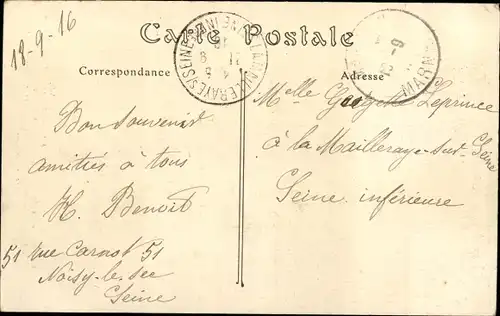 18-9-16
Carte Postale
Correspondance
Adresse
Bon souvenir
amitiés à tous
H. Benoit
51 rue Carnot 51
Noisy-le-sec
Seine
Melle Georgette Leprince
à la Mailleraye-sur-Seine
Seine inférieure
LA MAILLERAYE